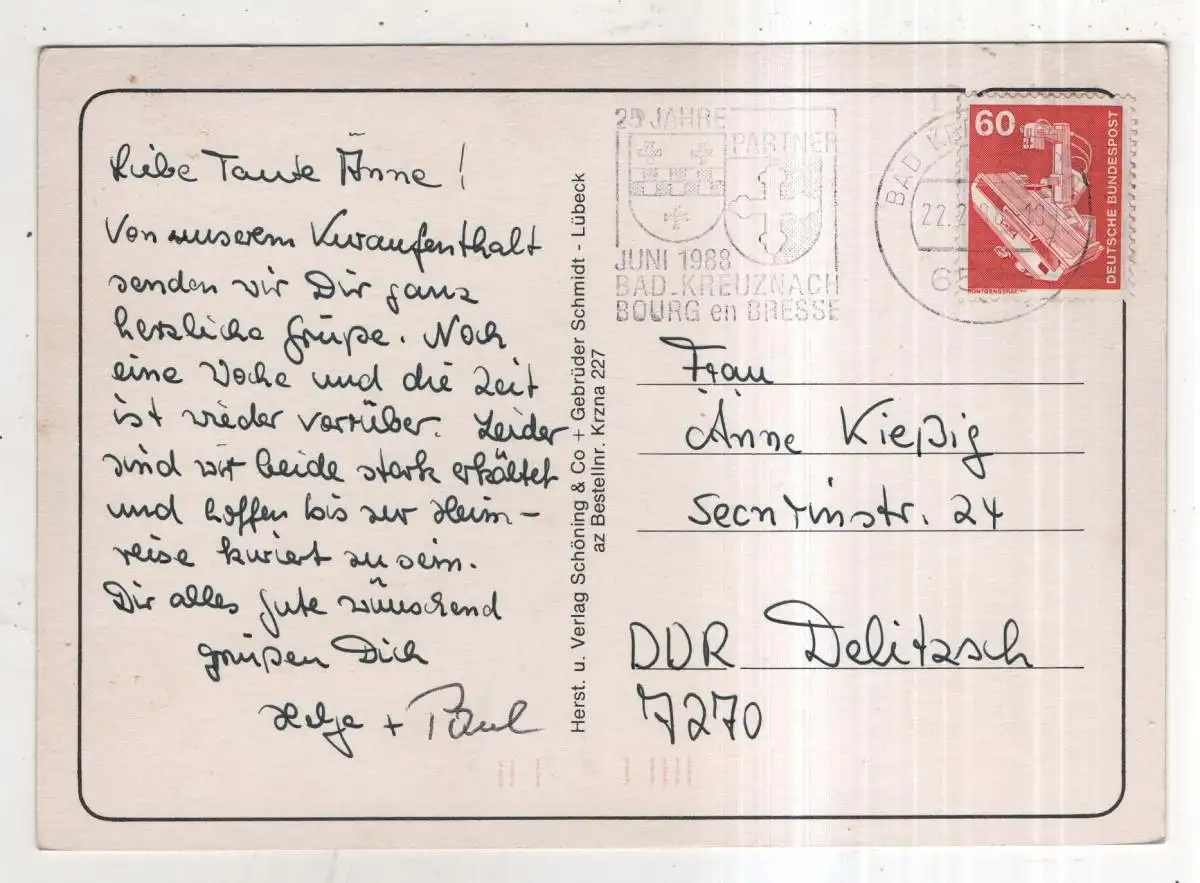 Liebe Tante Änne!
Von unserem Kuraufenthalt
senden wir Dir ganz
herzliche Grüße. Noch
eine Woche und die Zeit
ist wieder vorrüber. Leider
sind wir beide stark erkältet
und hoffen bis zur Heim-
reise kuriert zu sein.
Dir alles Gute wünschend
grüßen Dich
Helga + Paul
Herst. u. Verlag Schöning & Co + Gebrüder Schmidt - Lübeck
az Bestellnr. Krzna 227
25 JAHRE
PARTNER
JUNI 1988
BAD-KREUZNACH
BOURG en BRESSE
BAD
22.
65
60
DEUTSCHE BUNDESPOST
RÖNTGENGERÄT
Frau
Änne Kießig
str. 24
DDR Delitzsch
7270